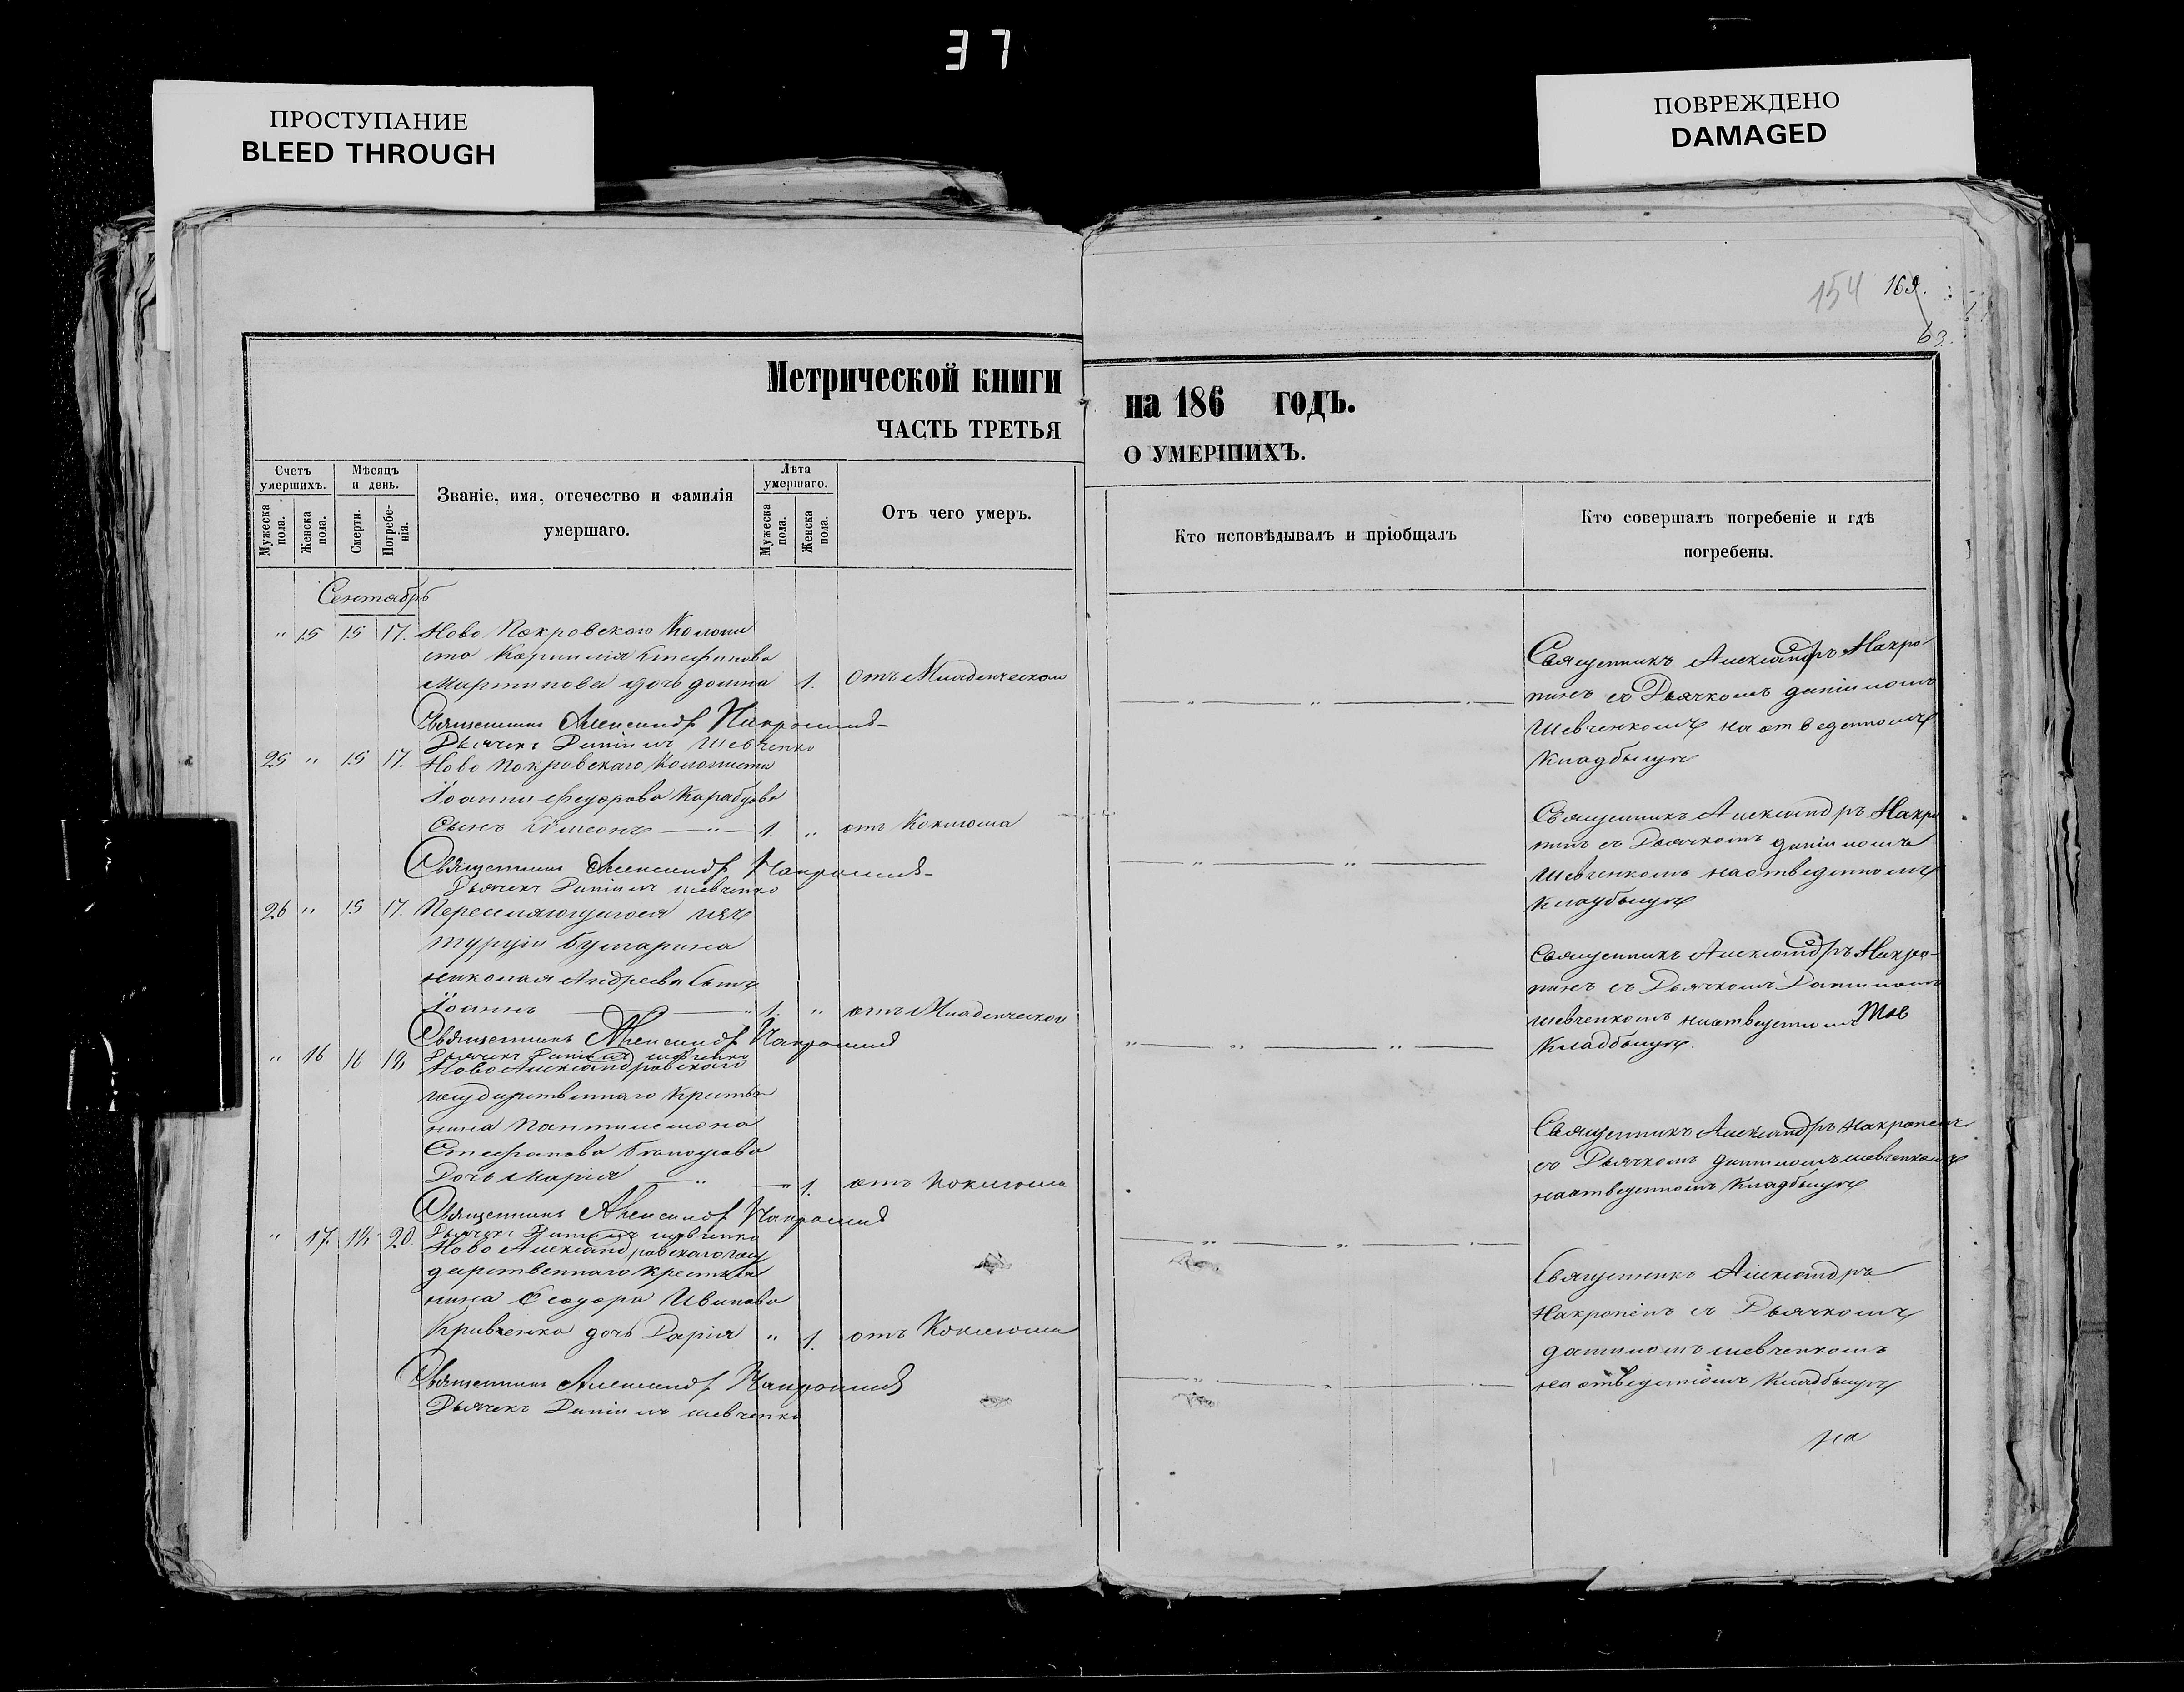 37
ПРОСТУПАНИЕ
BLEED THROUGH
ПОВРЕЖДЕНО
DAMAGED
154 169.
63.
Метрической книги на 186 годъ.
ЧАСТЬ ТРЕТЬЯ О УМЕРШИХЪ.
Счетъ умершихъ.
Мужеска пола.
Женска пола.
Мѣсяцъ и день.
Смерти.
Погребенія.
Званіе, имя, отечество и фамилія
умершаго.
Лѣта умершаго.
Мужеска пола.
Женска пола.
Отъ чего умеръ.
Кто исповѣдывалъ и пріобщалъ
Кто совершалъ погребеніе и гдѣ
погребены.
Сентябрь
" 15 15 17. Ново Покровскаго Колони
ста Стефанова
Мартинова дочь 1. Отъ Младенческой
Священникъ Александръ
Дьячекъ Даніилъ Шевченко
Священникъ Александръ
съ Дьячкомъ Даніиломъ
Шевченкомъ на отведенномъ
Кладбищѣ
25 " 15 17. Ново Покровскаго Колониста
Іоанна Феодорова
Сынъ Сѵмеонъ — " — 1. " отъ Коклюша
Священникъ Александръ
Дьячекъ Даніилъ шевченко
Священникъ Александръ
съ Дьячкомъ даніиломъ
Шевченкомъ на отведенномъ
Кладбищѣ
26 " 15 17. Переселяющагося изъ
Турціи Булгарина
николая Андреева Сынъ
Іоаннъ — " 1. " отъ Младенческой
Священникъ Александръ
Дьячекъ Даніилъ шевченко
Священникъ Александръ
съ Дьячкомъ Даніиломъ
шевченкомъ на отведенномъ
Кладбищѣ.
" 16 16 18 Ново Александровскаго
государственнаго Крестья
нина Пантилимона
Стефанова
Дочь Марія — " — " 1. отъ Коклюша
Священникъ Александръ
Дьячекъ Даніилъ шевченко
Священникъ Александръ
съ Дьячкомъ даніиломъ шевченкомъ
на отведенномъ Кладбищѣ
" 17. 18 20. Ново Александровскаго госу
дарственнаго крестья
нина Феодора Иванова
Кривченка дочь Дарія " 1. отъ Коклюша
Священникъ Александръ
Дьячекъ Даніилъ шевченко
Священникъ Александръ
съ Дьячкомъ
даніиломъ шевченкомъ
на отведенномъ Кладбищѣ